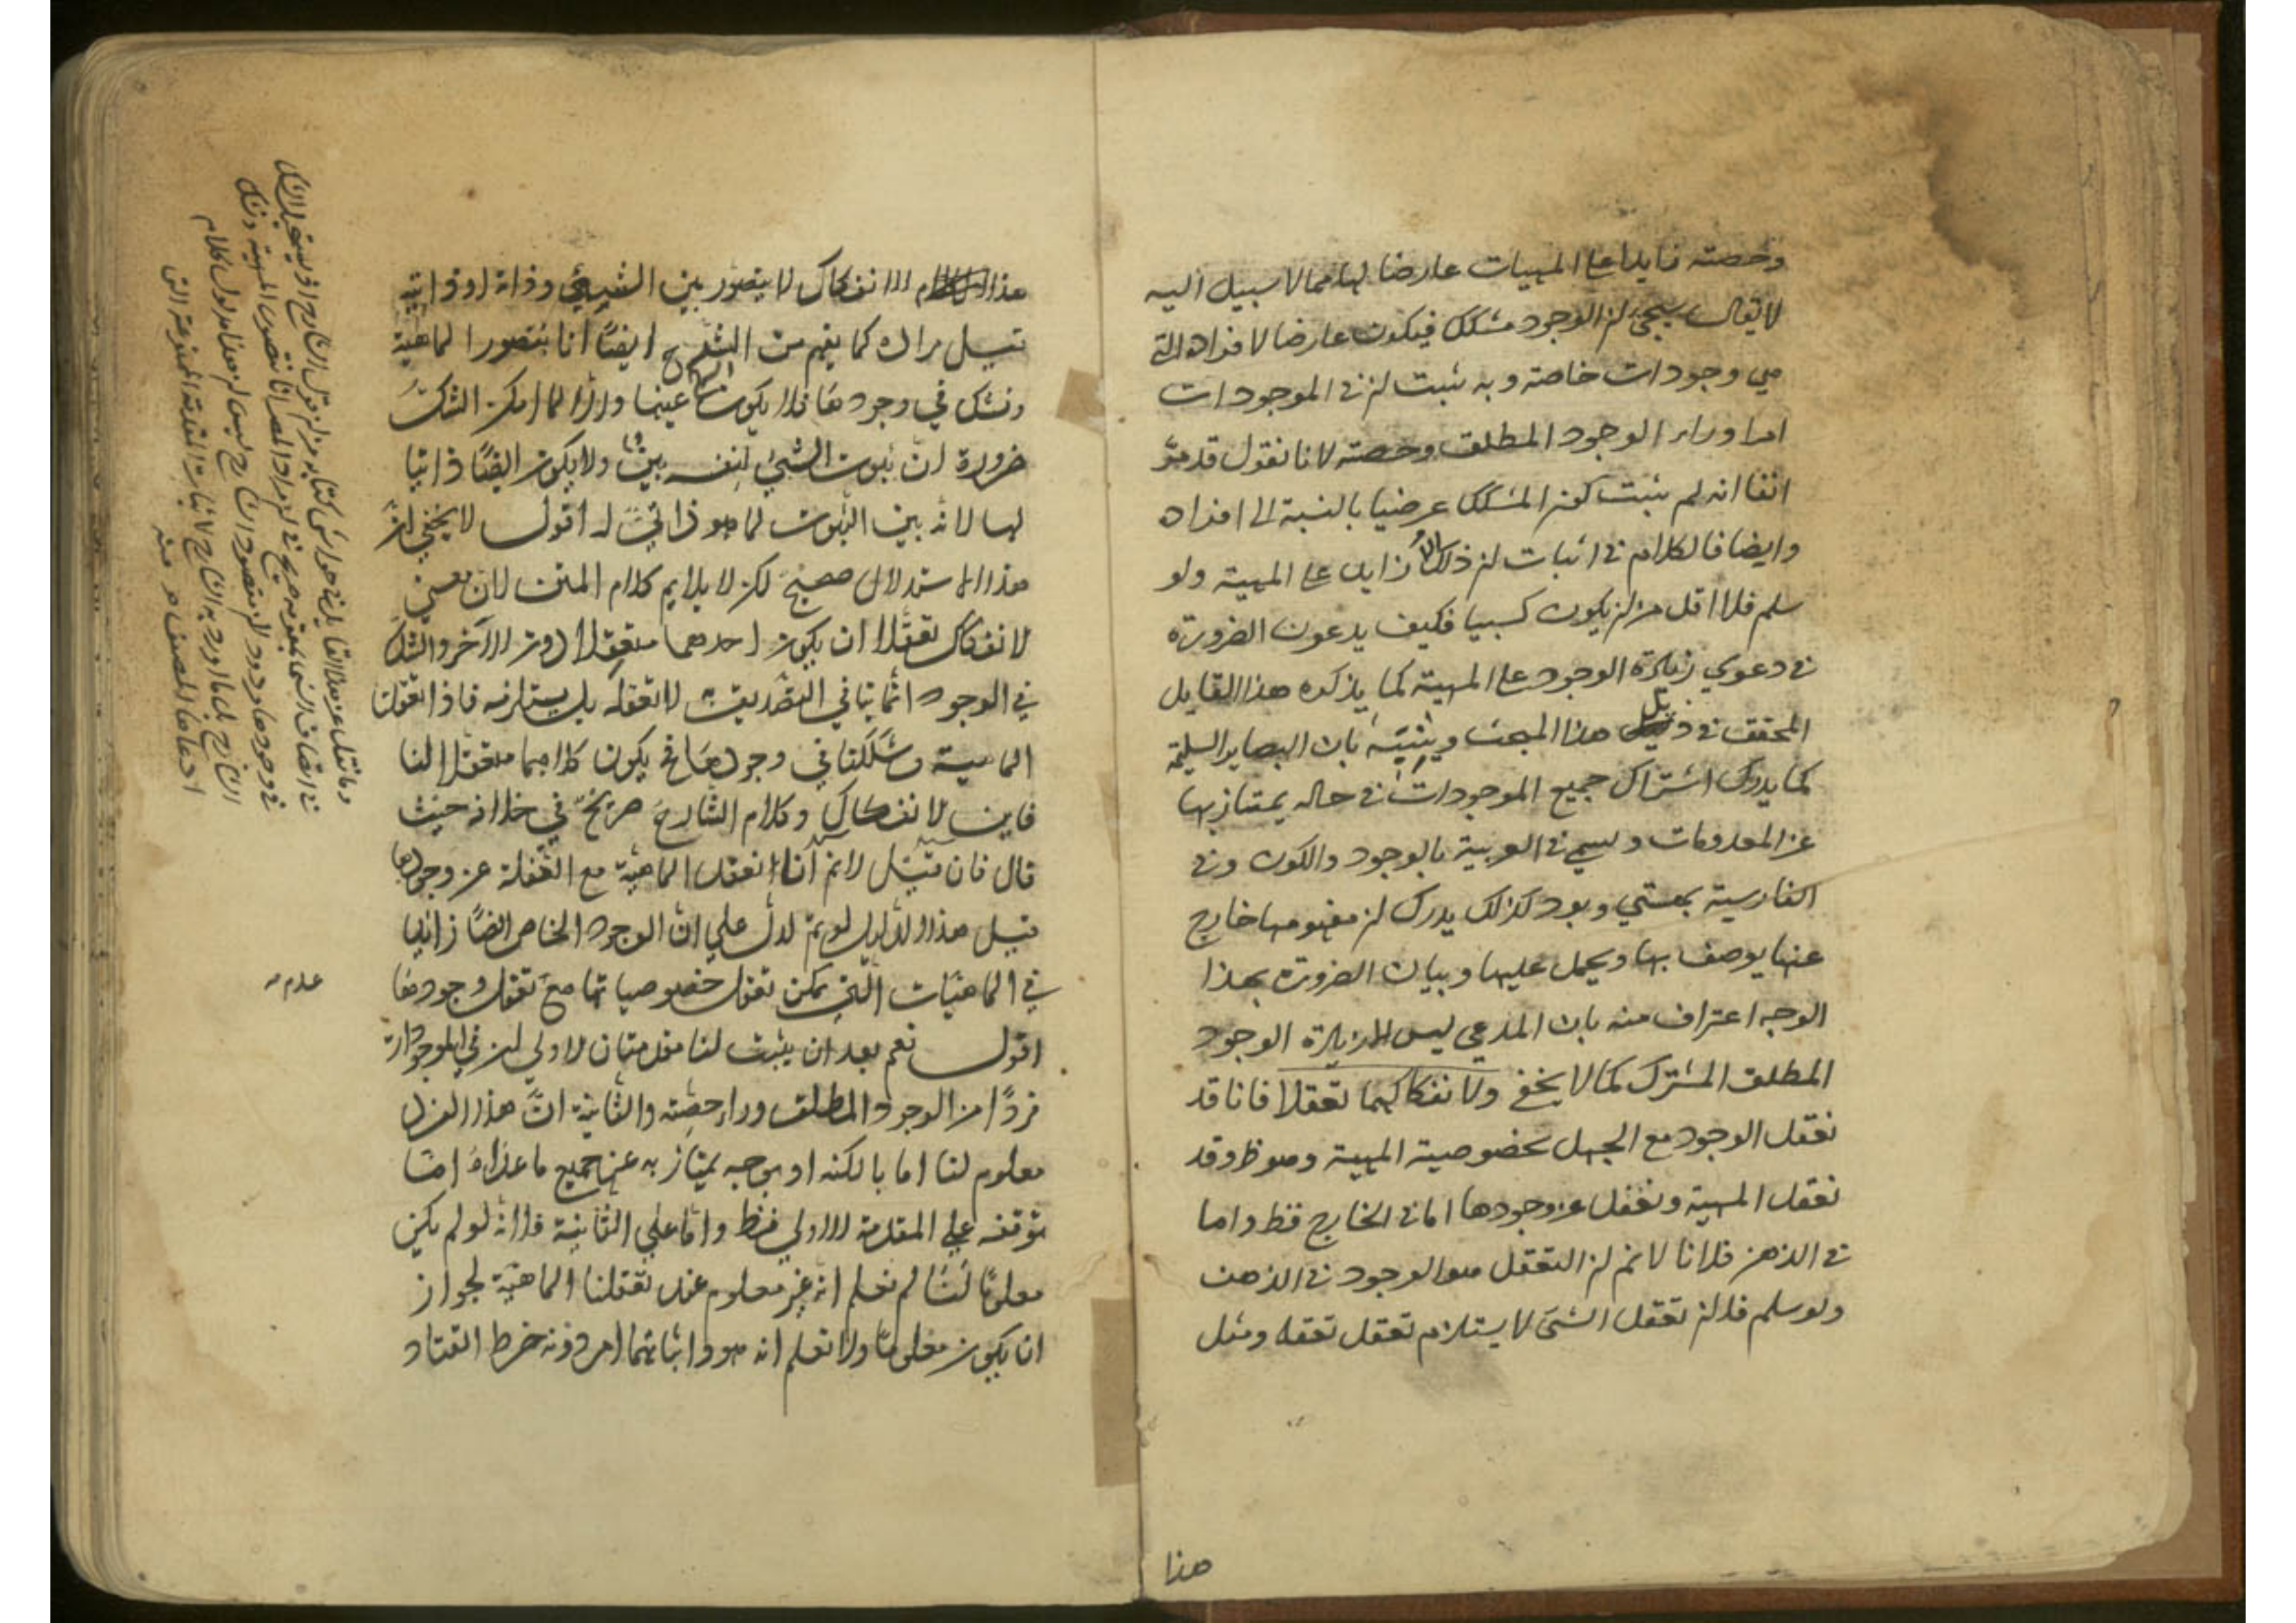 وحصته زايدا على المهيات عارضا لها مما لا سبيل اليه
لا يقال سيجيء ان الوجود مشكك فيكون عارضا لافراده التي
هي وجودات خاصة وبه يثبت ان في الموجودات
امرا وراء الوجود المطلق وحصته لانا نقول قد مر
انفا انه لم يثبت كون المشكك عرضيا بالنسبة الى افراده
وايضا فالكلام في اثبات ان ذلك زايد على المهية ولو
سلم فلا اقل من ان يكون كسبيا فكيف يدعون الضرورة
في دعوي زيادة الوجود على المهية كما يذكره هذا القايل
المحقق في ذيل هذا المبحث وينبه بان البصاير السليمة
كما يدرك اشتراك جميع الموجودات في حاله يمتاز بها
عن المعدومات ويسمي في العربية بالوجود والكون وفي
الفارسية بهستي وبود كذلك يدرك ان مفهومها خارج
عنها يوصف بها ويحمل عليها وبيان الضرورة بهذا
الوجه اعتراف منه بان المدعي ليس زيادة الوجود
المطلق المشترك كما لا يخفي ولانفكاكهما تعقلا فانا قد
نعقل الوجود مع الجهل بخصوصية المهية وهو ظ وقد
نعقل المهية ونغفل عن وجودها اما في الخارج فظ واما
في الذهن فلانا لا نم ان التعقل هو الوجود في الذهن
ولو سلم فلان تعقل الشئ لا يستلزم تعقل تعقله ومثل
هذا
هذا الانفكاك لا يتصور بين الشيئ وذاته او ذاتيه
قيل مراده كما يفهم من الشرح ايضًا انا نتصور الماهية
ونشك في وجودها فلا يكون عينها والا لما امكن الشك
ضرورة ان ثبوت الشئ لنفسه بين ولا يكون ايضًا ذاتيا
لها لانه بين الثبوت لما هو ذاتي له اقول لا يخفي ان
هذا الاستدلال صحيح لكن لا يلايم كلام المتن لان معني
الانفكاك تعقلا ان يكون احدهما متعقلا دون الآخر والشك
في الوجود انما ينافي التصديق به لا تعقله بل يستلزمه فاذا تعقلنا
الماهية وشككنا في وجودها فح يكون كلاهما متعقلا لنا
فاين الانفكاك وكلام الشارح صريح في خلافه حيث
قال فان قيل لا نم أنا نعقل الماهية مع الغفلة عن وجودها
قيل هذا الدليل لو تم لدل علي انّ الوجود الخاص ايضًا زايد
في الماهيات التي يمكن تعقل خصوصياتها مع تعقل وجودها
اقول نعم بعد ان يثبت لنا مقدمتان الاولي ان في الموجودات
فردًا من الوجود المطلق وراء حصته والثانية انّ هذا الفرد
معلوم لنا اما بالكنه او بوجه يمتاز به عن جميع ما عداه امّا
توقفه علي المقدمة الاولي فظ وامّا علي الثانية فلانه لو لم يكن
معلومًا لنا لم نعلم انه غير معلوم عند تعقلنا الماهية لجواز
ان يكون معلومًا ولا نعلم انه هو واثباتهما امر دونه خرط القتاد